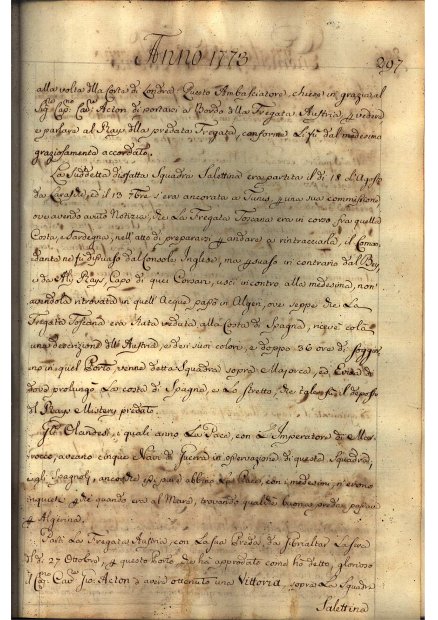 Anno 1773
207
alla volta della Corte di Londra. Questo Ambasciatore, chiese in grazia al
Sig.r Cap.no Cav.r Acton di portarsi a Bordo della Fregata Austria, p vedere
e parlare al Rays della predata Fregata, conforme Li fù dal medesimo
graziosamente accordato.
La Suddetta disfatta Squadra Salettina era partita il dì 18 d'Agosto
da Larasche, ed il 13 7bre s'era ancorata a Tunis p una sua commissione
ove avendo avuto Notizia, che La Fregata Toscana era in corso fra quella
Costa, e Sardegna, nell'atto di prepararsi p andare a rintracciarla, il Coman
dante ne fu disuaso dal Console Inglese, ma persuaso in contrario dal Bey,
e da Alì Rays, Capo di quei Corsari, uscì incontro alla medesima, non
avendola ritrovata in quell'Acque passò in Algeri, ove seppe che La
Fregata Toscana era stata veduta alla Costa di Spagna, riceve colà
una descrizione dell'Austria, e dei suoi colori, e doppo 36 ore di soggior
no in quel Porto, venne detta Squadra sopra Majorca, ed
dove prolungò La costa di Spagna, e Lo stretto, che è il deposto
del Rays predato.
Gl'Olandesi, i quali anno La Pace, con L'Imperatore di Ma
rocco, aveano cinque Navi di Guerra in osservazione di questa Squadra,
e gli Spagnoli, ancorche essi pure abbino La Pace, con i medesimi, n'erono
inquieti p che quando era al Mare, trovando qualche buona preda, passava
p Algerina.
Partì La Fregata Austria con La sua Preda, da Gibraltar La sera
del dì 27 Ottobre, p questo Porto, che ha approdato come ho detto, glorioso
il Cap.no Cav.r Gio: Acton d'avere ottenuto una Vittoria, sopra La Squadra
Salettina